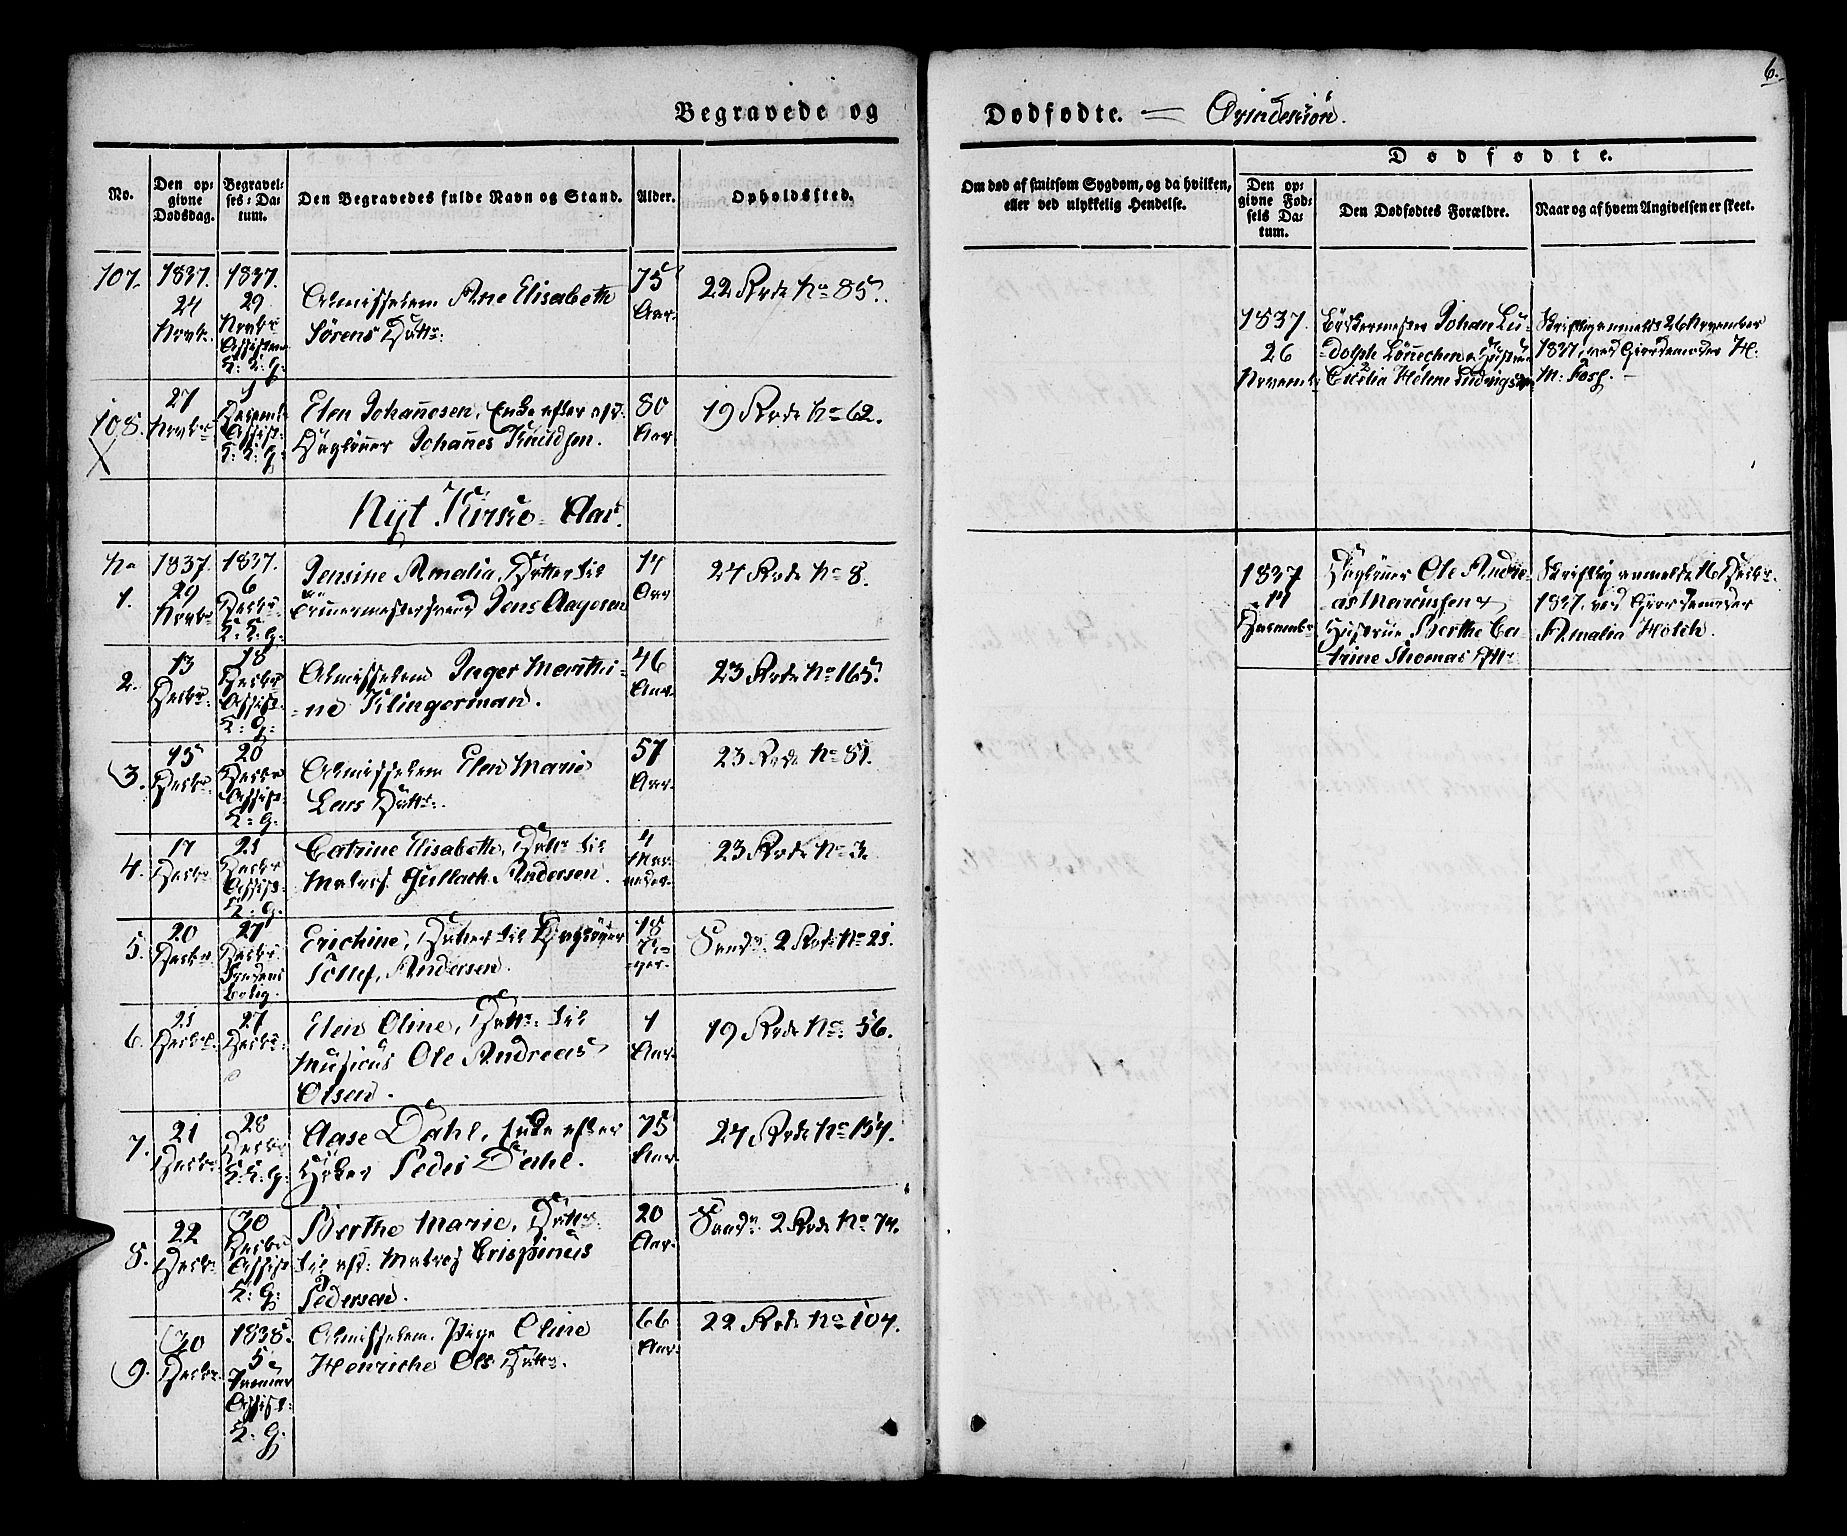 6.
Begravede og Dødfødte. = Qvindekiøn.
No.
Den op-
givne
Dødsdag.
Begravel-
ses-Da-
tum.
Den Begravedes fulde Navn og Stand.
Alder.
Opholdssted.
Om død af smitsom Sygdom, og da hvilken,
eller ved ulykkelig Hendelse.
Dødfødte.
Den op-
givne Fød-
sels Da-
tum.
Den Dødfødtes Forældre.
Naar og af hvem Angivelsen er skeet.
107. 1837. 24 Novbr. 1837. 29 Novbr. Assistens K: G:
Almisselem Ane Elisabeth
Sørens Datter
75 Aar.
22 Rode No 85.
108. 27 Novbr. 1 Decemb. Assist: K: G:
Elen Johannesen, Enke efter afd:
Dagleier Johannes Knudsen.
80 Aar
19 Rode No 62.
Nyt Kirke-Aar.
No 1. 1837. 29 Novbr. 1837. 6 Decbr. K: G:
Jensine Amalia, Datter til
Tømmermestersvend Jens Aagesen
14 Aar
24 Rode No 8.
2. 13 Decbr. 18 Decbr. Assist: K: G:
Almisselem Inger Marthi-
=ne Klingerman.
46 Aar.
23 Rode No 165.
3. 15 Decbr. 20 Decbr Assist: K: G:
Almisselem Elen Marie
Lars Datter:
57 Aar.
23 Rode No 81.
4. 17 Decbr. 21 Decbr Assist: K: G:
Catrine Elisabeth, Datter til
Matros Gullach Andersen.
4 Maaneder.
23 Rode No 3.
5. 20 Decbr. 27 Decbr.
Erichine, Datter til Dagleier
Tollef Andersen.
18 Dager.
Sandv. 2 Rode No 21.
6. 21 Decbr. 27 Decbr.
Elen Oline, Datter til
Musicus Ole Andreas
Olsen.
1 Aar.
19 Rode No: 56.
7. 21 Decbr. 28 Decbr K: G:
Aase Dahl, Enke efter
Høker Peder Dahl.
75 Aar.
24 Rode No 154.
8. 22 Decbr. 30 Decbr Assist K: G:
Berthe Marie, Datter
til afd: Matros Crispinus
Pedersen.
20 Aar.
Sandv. 2 Rode No 74.
9. 30 Decbr. 1838. 5 Januar Assist: K: G:
Almisselem, Pige Oline
Henriche Ols Datter.
66 Aar.
22 Rode No 104.
1837. 26 Novemb.
Bødkermester Johan Lu-
=dolph Lønnechen & Hustrue
Cicilia Helene Ludvigsen
Skriftlig anmeldt 26 November
1837, ved Giordemoder H:
M: Foss.
1837 14 Decembr
Dagleier Ole Andre-
as Marcussen &
Hustrue Berthe Ca-
trine Thomas Dttr
Skriftlig anmeldt 16 Decbr.
1837. ved Giordemoder
Amalia Holch.